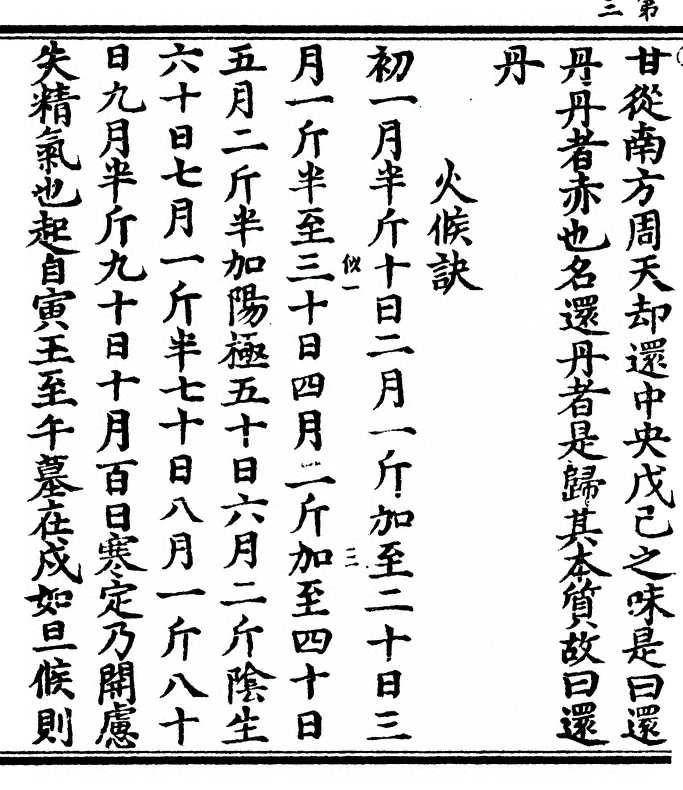 第三
甘從南方周天却還中央戊己之味是曰還
丹丹者赤也名還丹者是歸其本質故曰還
丹
火候訣
初一月半斤十日二月一斤加至二十日三
似一
三
月一斤半至三十日四月二斤加至四十日
五月二斤半加陽極五十日六月二斤陰生
六十日七月一斤半七十日八月一斤八十
日九月半斤九十日十月百日寒定乃開慮
失精氣也起自寅王至午墓在戍如旦候則